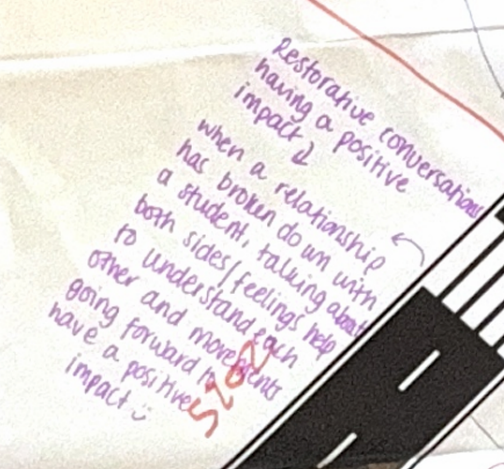 Restorative conversations
having a positive
impact ↓
when a relationship
has broken down with
a student, talking about
both sides/feelings help
to understand each
other and move
going forward to
have a positive
impact :)